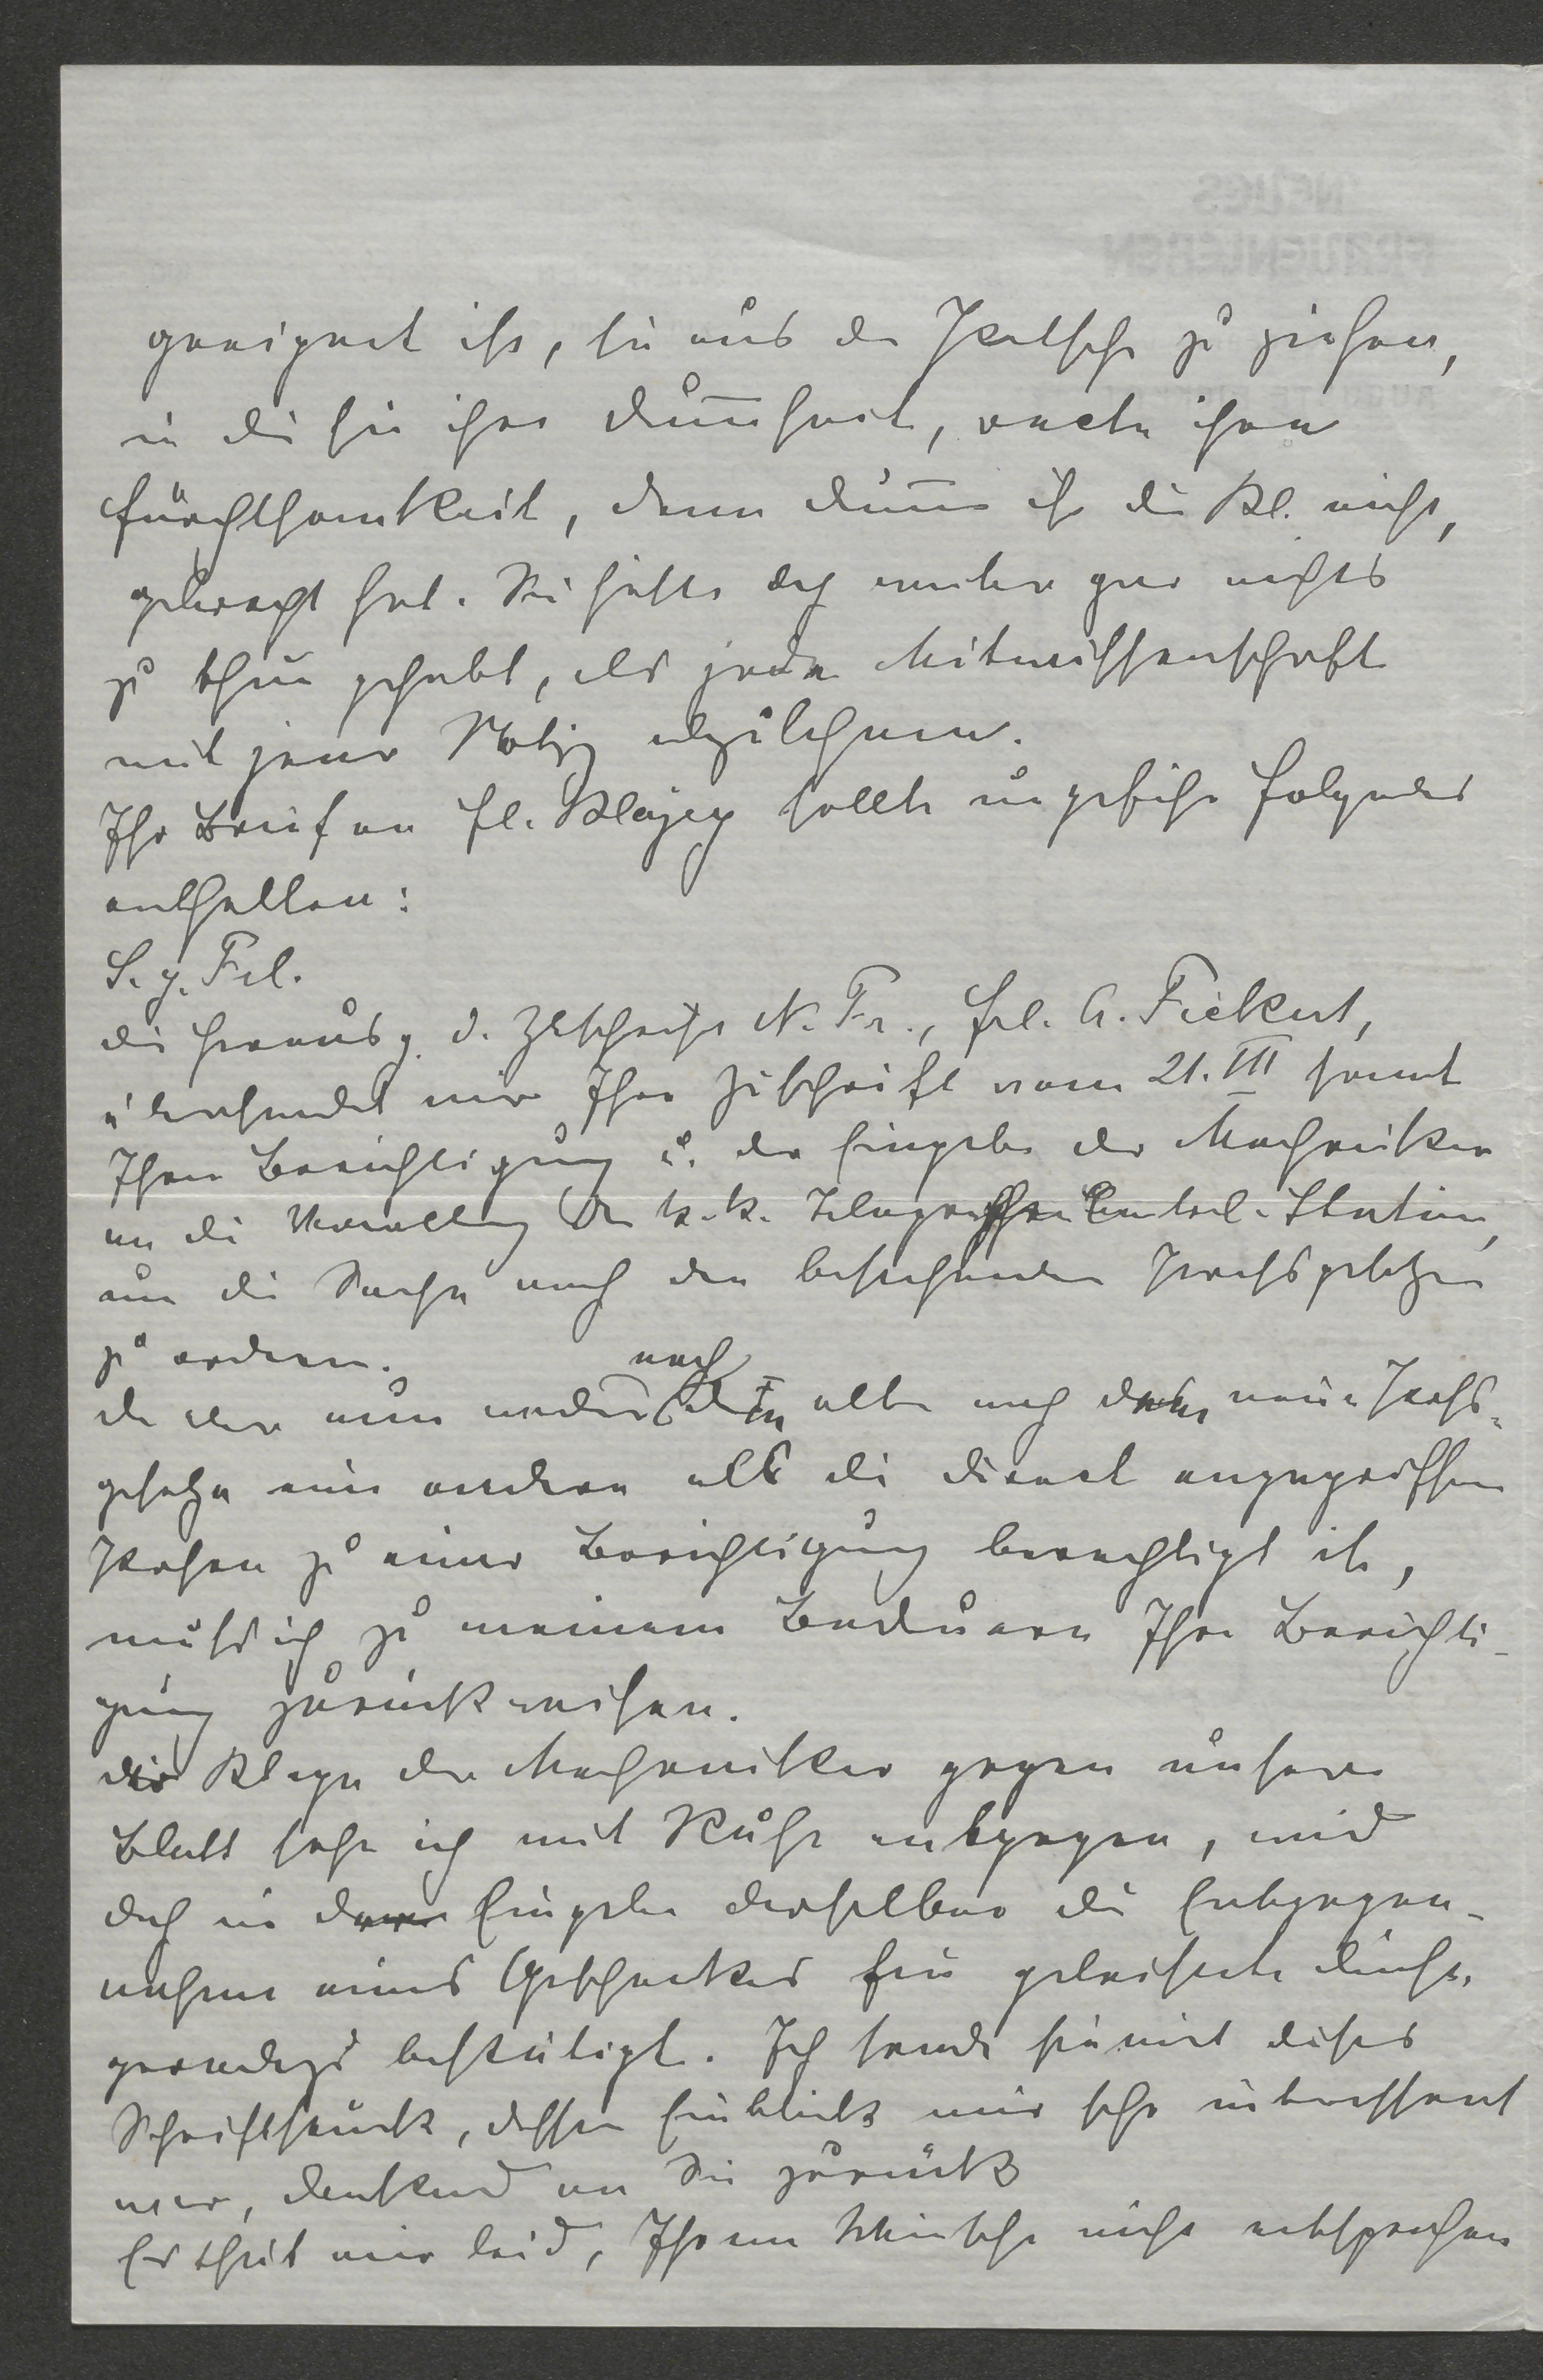 geeignet ist, sie aus der Patsche zu ziehen,
in die sie ihre Dum̅heit, recte ihre
Furchtsamkeit, denn dum̅ ist die Kl. nicht,
gebracht hat. Sie hätte doch weiter gar nichts
zu thun gehabt, als jede Mitwissenschaft
mit jener Notiz abzulehnen.
Ihr Brief an Frl. Klazey sollte ungefähr folgendes
enthalten:
S. g. Frl.
Die Herausg. d. Ztschrift N. Fr., Frl. A. Fickert,
übersendet mir Ihre Zuschrift vom 21. III samt
Ihrer Berichtigung u. der Eingabe der Mechaniker
an die Verwaltung der k. k. Telegraphen Central-Station,
um die Sache nach den bestehenden Pressgesetzen
zu ordnen.
Da aber nun weder nach dem alten noch dem neuen Press-
gesetze eine andere als die direct angegriffene
Person zu einer Berichtigung berechtigt ist,
muss ich zu meinem Bedauern Ihre Berichti-
gung zurückweisen.
Der Klage der Mechaniker gegen unser
Blatt sehe ich mit Ruhe entgegen, wird
doch in der Eingabe derselben die Entgegen-
nahme eines Geschenkes für geleistete Dienste
geradezu bestätigt. Ich sende hiemit dieses
Schriftstück, dessen Einblick mir sehr interessant
war, dankend an Sie zurück
Es thut mir leid, Ihrem Wunsche nicht entsprechen